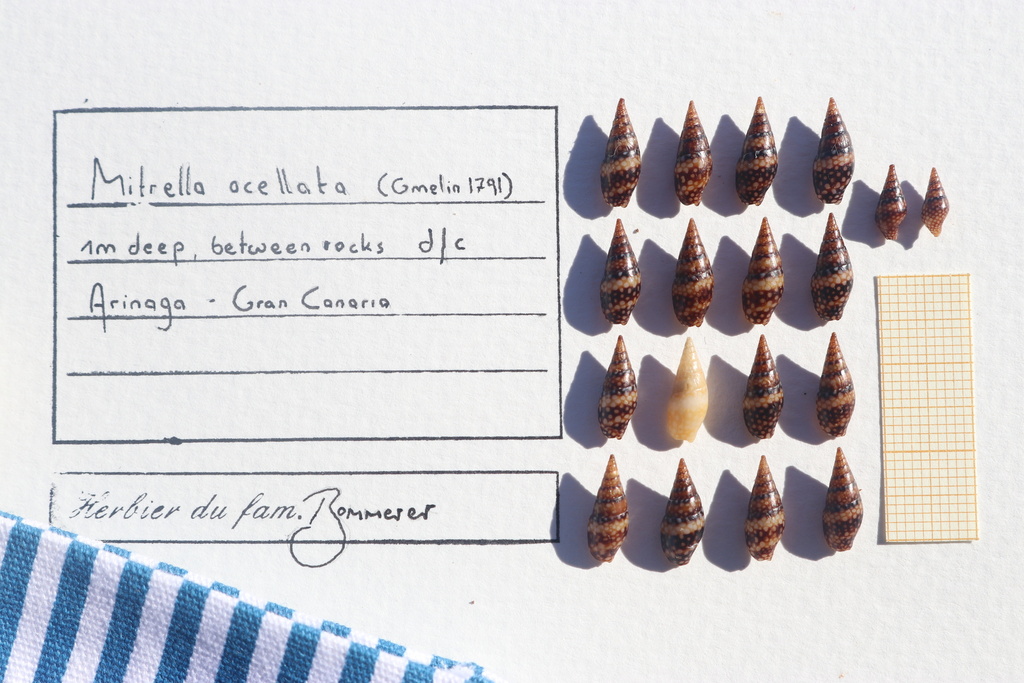 Mitrella ocellata (Gmelin 1791)
1m deep, between rocks d/c
Arinaga - Gran Canaria
Herbier du fam. Bommerer